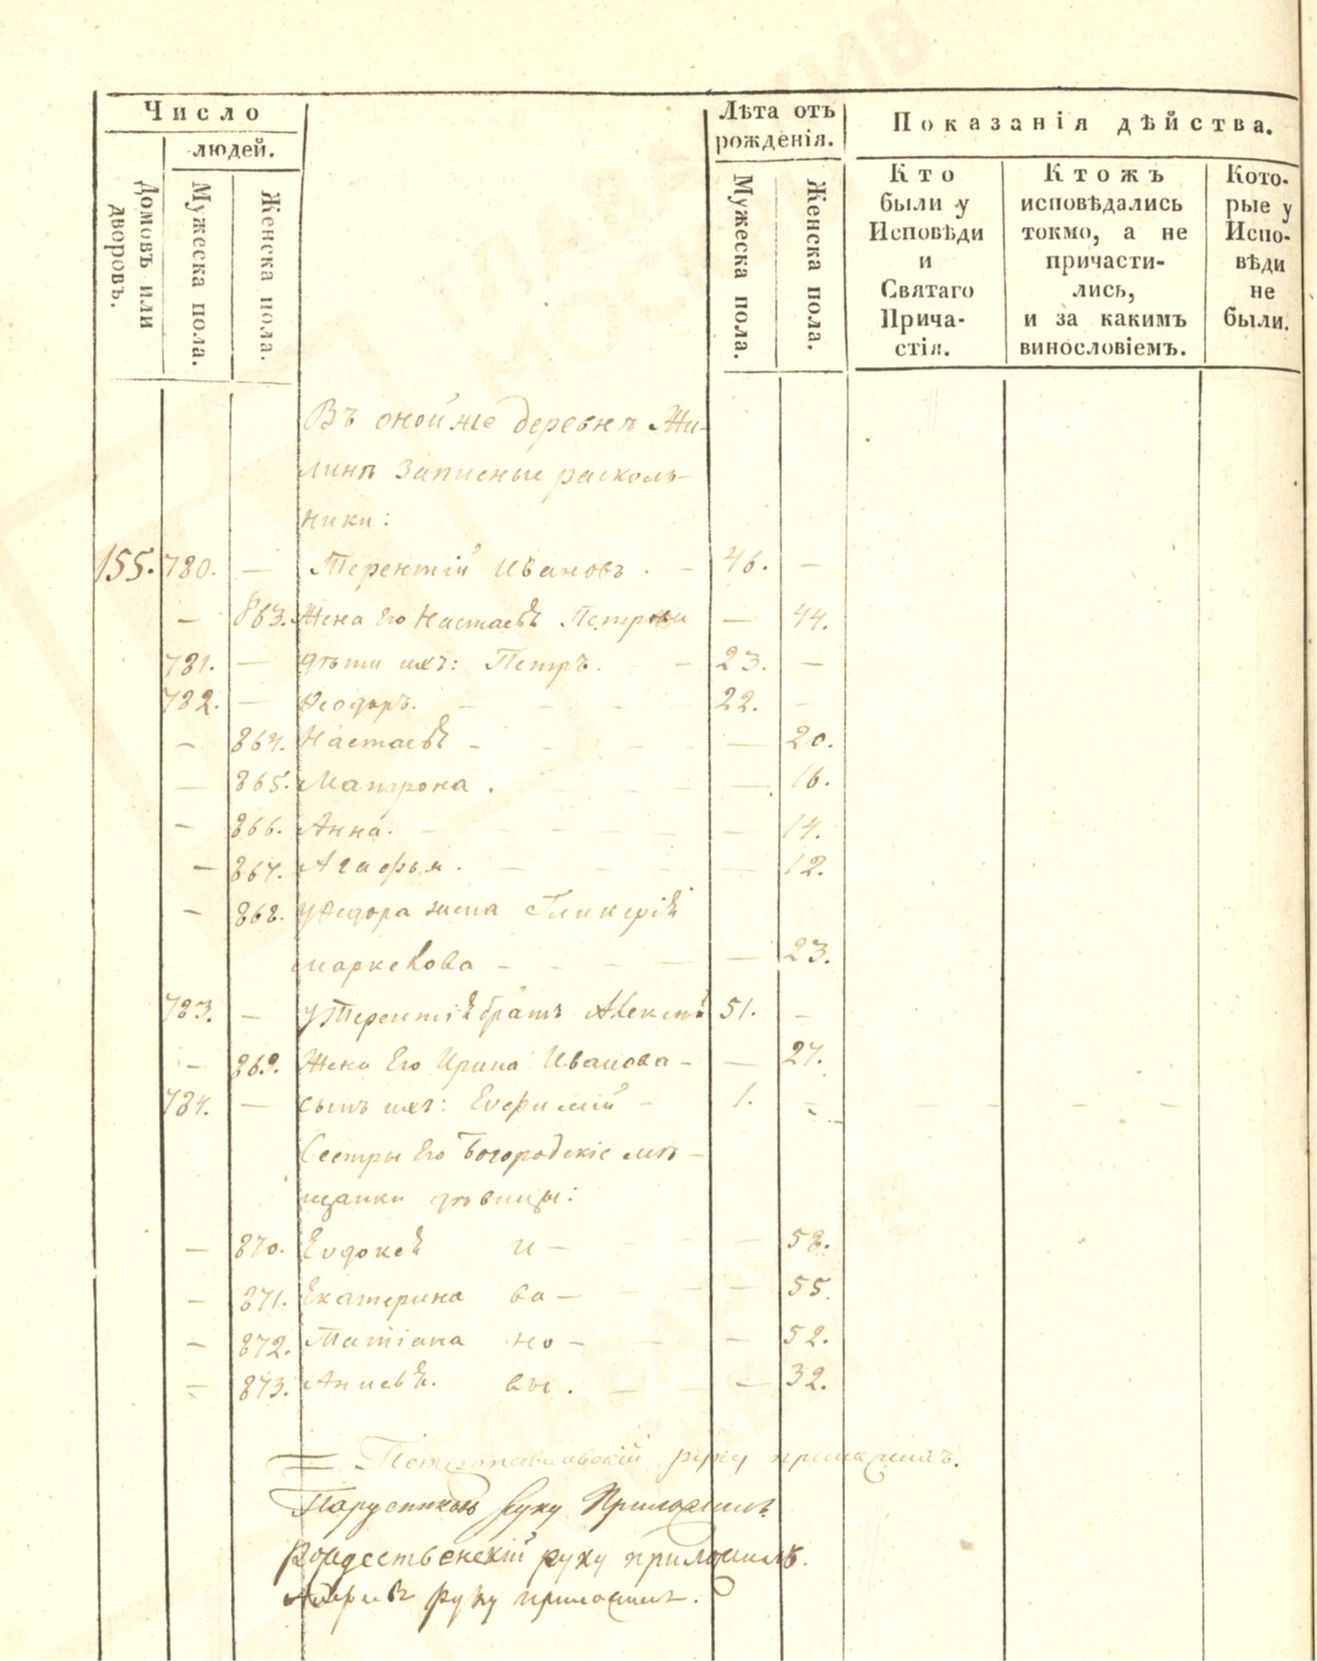 Число
людей.
Домовъ или дворовъ.
Мужеска пола.
Женска пола.
Лѣта отъ
рожденія.
Мужеска пола.
Женска пола.
Показанія дѣйства.
Кто
были у
Исповѣди
и
Святаго
Прича-
стія.
Ктожъ
исповѣдались
токмо, а не
причасти-
лись,
и за какимъ
винословіемъ.
Кото-
рые у
Испо-
вѣди
не
были.
Въ оной же деревнѣ Жи-
линѣ записные расколь-
ники:
155. 780. — Терентій Ивановъ. — 46. —
— 863. Жена Его Настасья Петрова — 44.
781. — дѣти ихъ: Петръ. — 23. —
782. — Ѳеодоръ. — 22. —
— 864. Настасья — — 20.
— 865. Матрона. — 16.
— 866. Анна. — — 14.
— 867. Агафья. — — 12.
— 868. у Ѳедора жена Гликерія
маркелова — — 23.
783. — у Терентія братъ Алексѣй 51. —
— 869. Жена Его Ирина Иванова — — 27.
784. — сынъ ихъ: Евфимій — 1. —
Сестры Его Богородскіе мѣ-
щанки дѣвицы:
— 870. Евдокея И — — 58.
— 871. Екатерина ва — — 55.
— 872. Татіана но — — 52.
— 873. Анисья. вы. — — 32.
Петропавловскій руку приложилъ.
руку Приложилъ
Рождественскій руку приложилъ.
руку приложилъ.